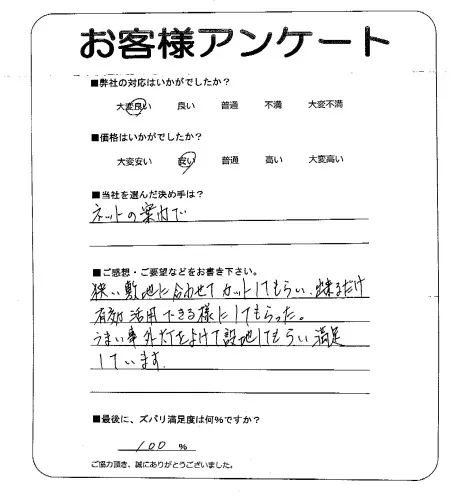 お客様アンケート
■弊社の対応はいかがでしたか？
大変良い 良い 普通 不満 大変不満
■価格はいかがでしたか？
大変安い 安い 普通 高い 大変高い
■当社を選んだ決め手は？
ネットの案内で
■ご感想・ご要望などをお書き下さい。
狭い敷地に合わせてカットしてもらい、出来るだけ
有効活用できる様にしてもらった。
うまい事外灯をよけて設地してもらい満足
しています。
■最後に、ズバリ満足度は何%ですか？
100 %
ご協力頂き、誠にありがとうございました。